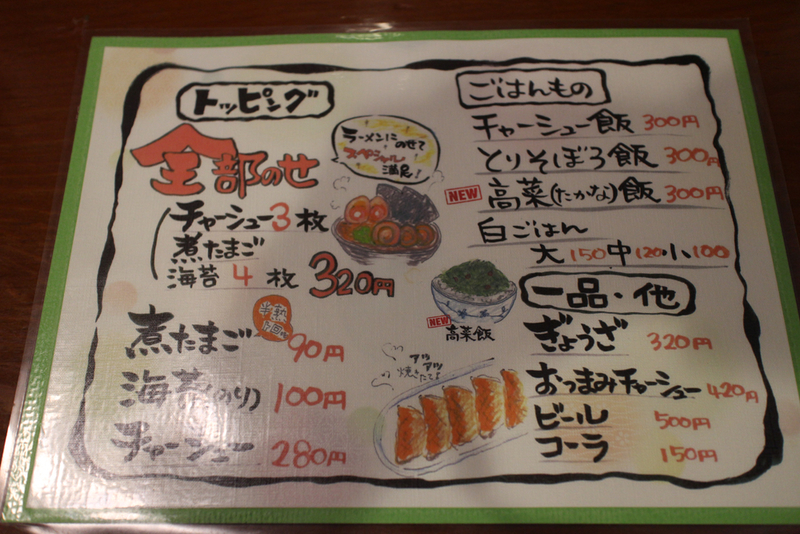 トッピング
全部のせ
ラーメンにのせて
スペシャル
満足!
チャーシュー3枚
煮たまご
海苔4枚 320円
半熟
煮たまご 90円
海苔(のり) 100円
チャーシュー 280円
ごはんもの
チャーシュー飯 300円
とりそぼろ飯 300円
NEW 高菜(たかな)飯 300円
白ごはん
大150中120小100
NEW
高菜飯
一品・他
ぎょうざ 320円
アツ
アツ
焼きたてよ
おつまみチャーシュー 420円
ビール 500円
コーラ 150円